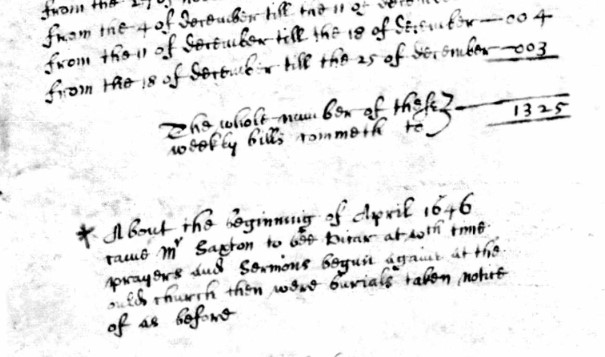 from the
from the 4 of december till the 11 of
from the 11 of december till the 18 of december 004
from the 18 of december till the 25 of december 003
The whole number of these
weekly bills commeth to 1325
About the beginning of April 1646
came Mr Saxton to bee Vicar at wch time
prayers and Sermons begun againe at the
ould church then were burials taken notice
of as before